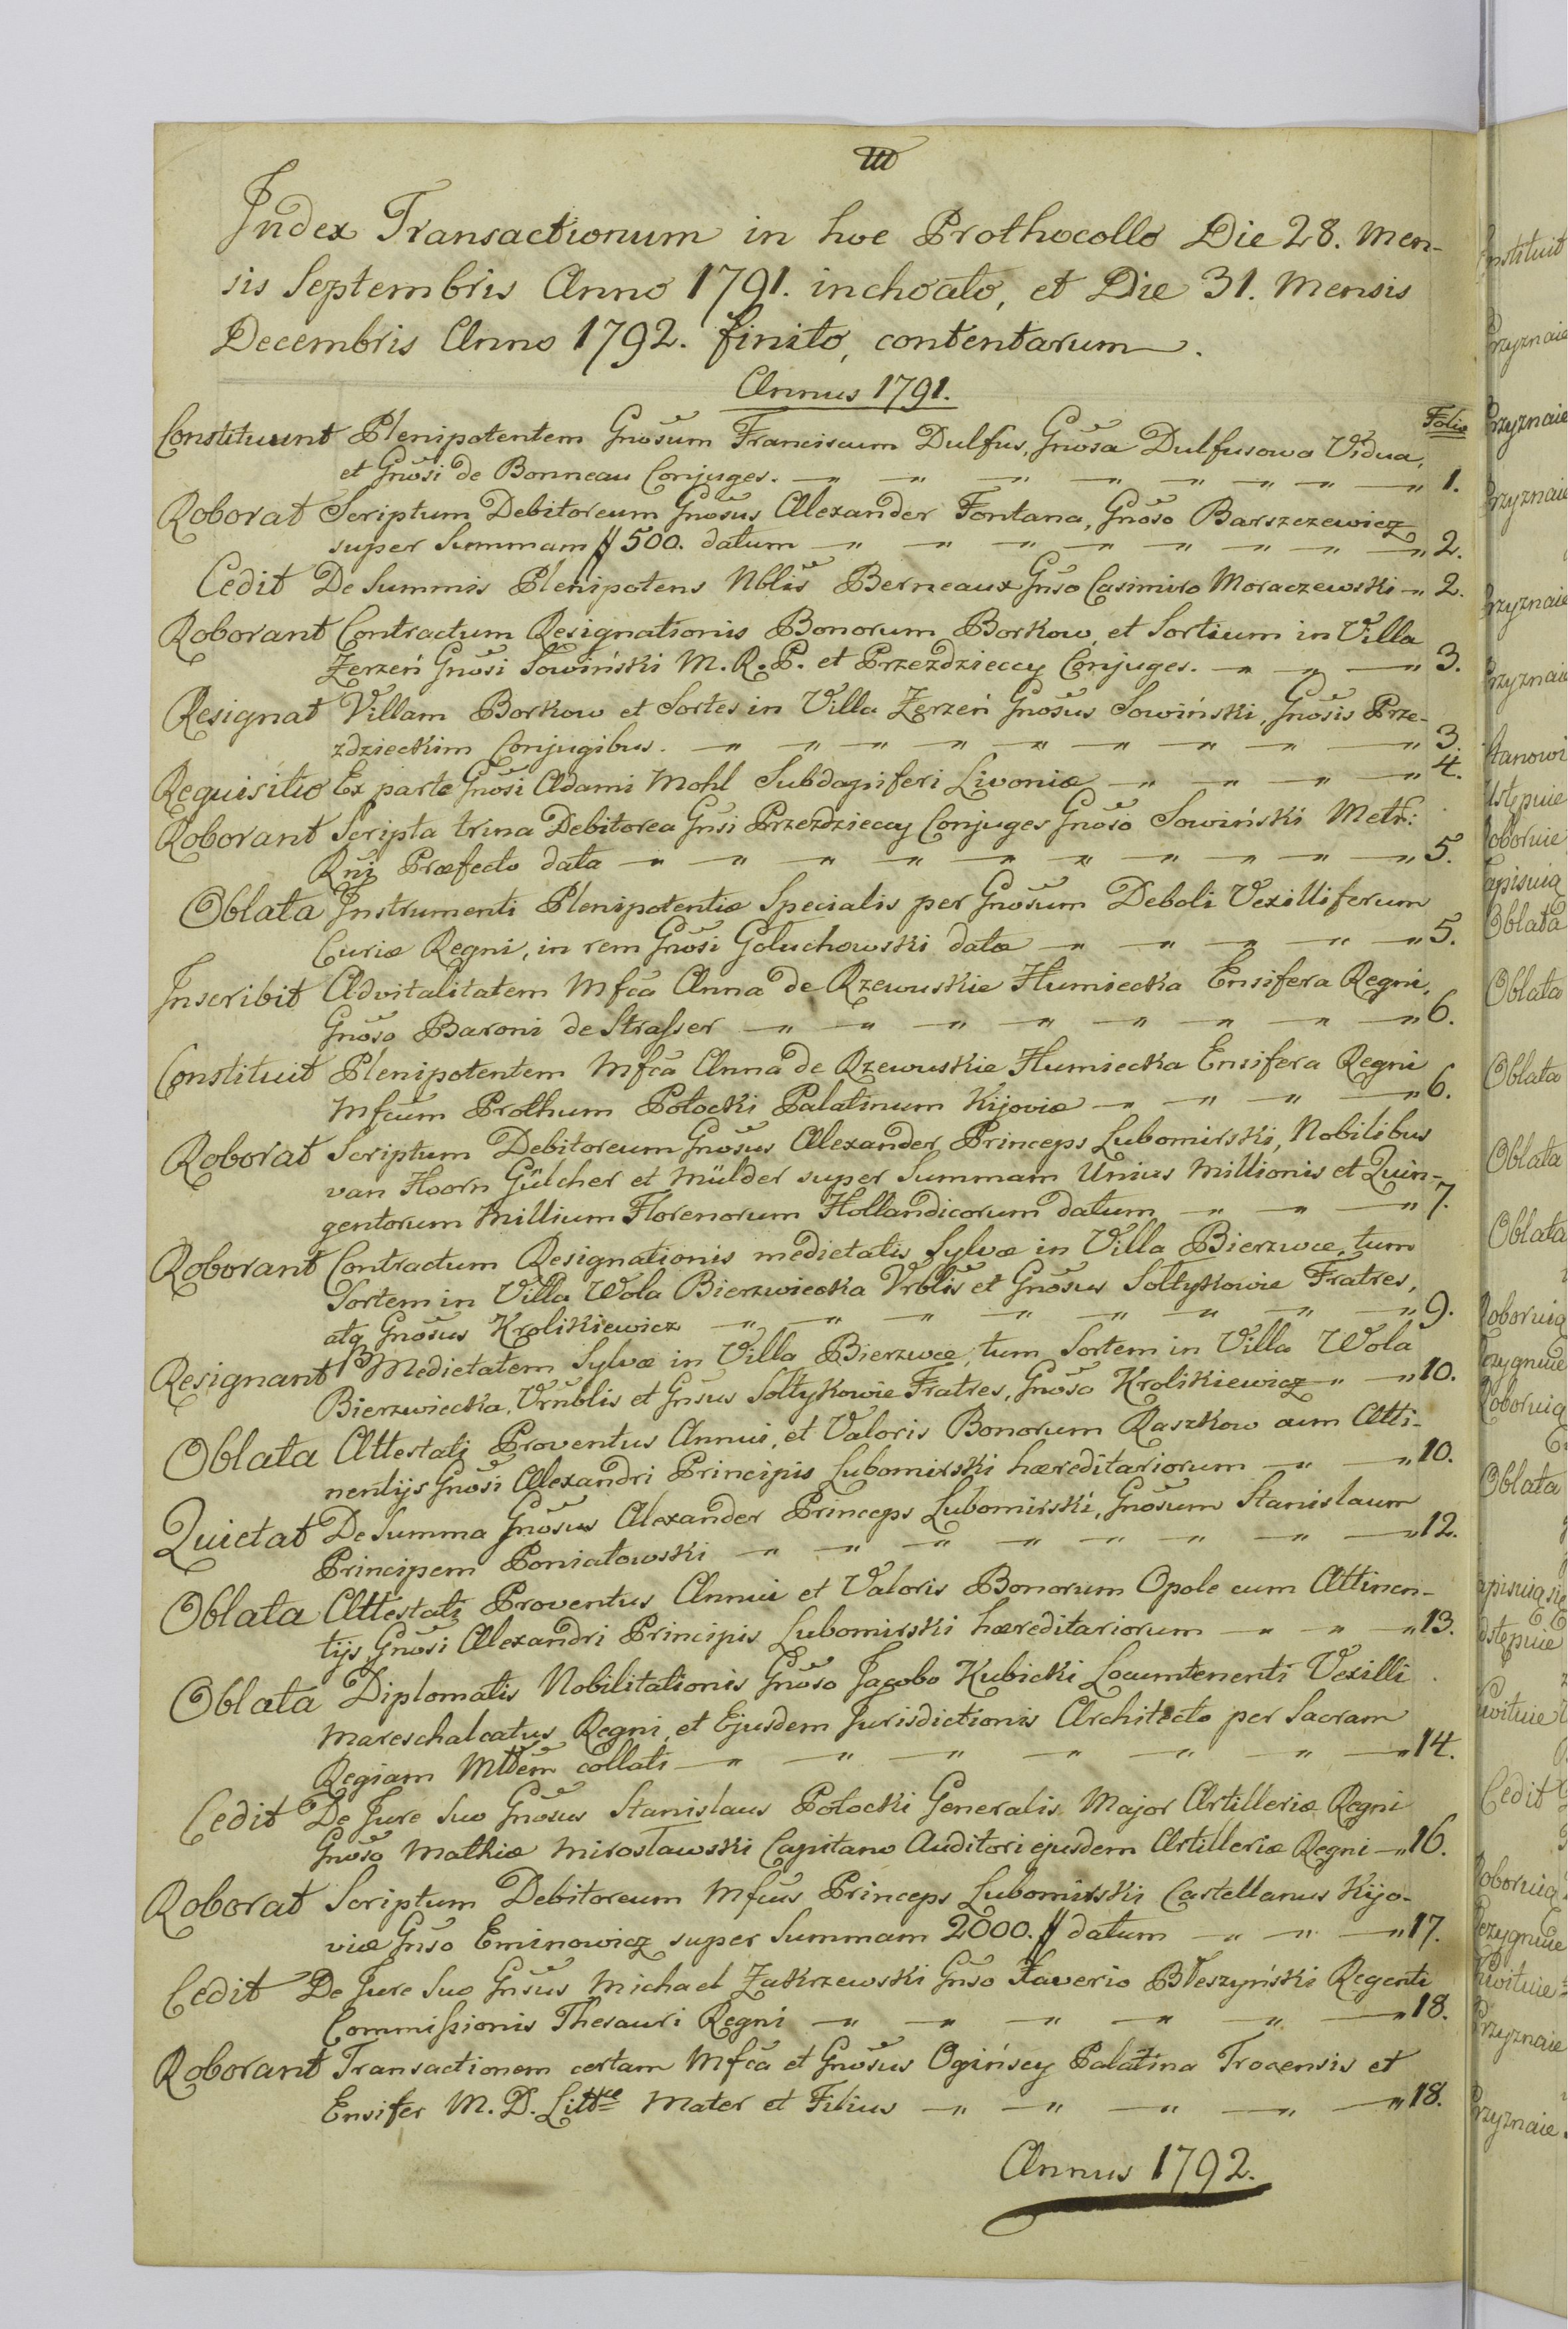 III
Index Transactionum in hoc Prothocollo Die 28. Men-
sis Septembris Anno 1791. inchoato, et Die 31. Mensis
Decembris Anno 1792. finito, contentarum.
Annus 1791.
Folio
Constituunt Plenipotentem Gnõsum Franciscum Dulfus, Gnõsa Dulfusowa Vidua,
et Gnõsi de Bonneau Conjuges. 1.
Roborat Scriptum Debitoreum Gnõsus Alexander Fontana, Gnõso Barszczewicz
super Summam # 500. datum 2.
Cedit De Summis Plenipotens Nblis Berneaux Gnso Casimiro Moraczewski 2.
Roborant Contractum Resignationis Bonorum Borkow, et Sortium in Villa
Zerzeń Gnõsi Sowiński M. R. P. et Przezdzieccy Conjuges. 3.
Resignat Villam Borkow et Sortes in Villa Zerzeń Gnõsus Sowiński, Gnõsis Prze-
zdzieckim Conjugibus. 3.
Requisitio Ex parte Gnõsi Adami Mohl Subdapiferi Livoniæ 4.
Roborant Scripta trina Debitorea Gnsi Przezdzieccy Conjuges Gnõso Sowiński Metr:
Rni Præfecto data 5.
Oblata Instrumenti Plenipotentiæ Specialis per Gnõsum Deboli Vexilliferum
Curiæ Regni, in rem Gnõsi Goluchowski datæ 5.
Inscribit Advitalitatem Mfca Anna de Rzewuskie Humiecka Ensifera Regni,
Gnõso Baroni de Strasser 6.
Constituit Plenipotentem Mfca Anna de Rzewuskie Humiecka Ensifera Regni
Mfcum Prothum Potocki Palatinum Kijoviæ 6.
Roborat Scriptum Debitoreum Gnõsus Alexander Princeps Lubomirski, Nobilibus
van Hoorn Gülcher et Mülder super Summam Unius Millionis et Quin-
gentorum Millium Florenorum Hollandicorum datum 7.
Roborant Contractum Resignationis medietatis Sylvæ in Villa Bierzwce, tum
Sortem in Villa Wola Bierzwiecka Vrblis et Gnõsus Sołtykowie Fratres,
atq Gnõsus Krolikiewicz 9.
Resignant Medietatem Sylvæ in Villa Bierzwce, tum Sortem in Villa Wola
Bierzwiecka, Vrnblis et Gnsus Sołtykowie Fratres, Gnõso Krolikiewicz 10.
Oblata Attestati Proventus Annui, et Valoris Bonorum Raszkow cum Atti-
nentijs Gnõsi Alexandri Principis Lubomirski hæreditariorum 10.
Quietat De Summa Gnõsus Alexander Princeps Lubomirski, Gnõsum Stanislaum
Principem Poniatowski 12.
Oblata Attestati Proventus Annui et Valoris Bonorum Opole cum Attinen-
tijs Gnõsi Alexandri Principis Lubomirski hæreditariorum 13.
Oblata Diplomatis Nobilitationis Gnõso Jacobo Kubicki Locumtenenti Vexilli
Mareschalcatus Regni, et Ejusdem Jurisdictionis Architecto per Sacram
Regiam Mttem collati 14.
Cedit De Jure Suo Gnõsus Stanislaus Potocki Generalis Major Artilleriæ Regni
Gnõso Mathiæ Mirosławski Capitano Auditori ejusdem Artilleriæ Regni 16.
Roborat Scriptum Debitoreum Mfcus Princeps Lubomirski Castellanus Kijo-
viæ Gnso Eminowicz super Summam 2000. # datum 17.
Cedit De Jure Suo Gnsus Michael Zakrzewski Gnso Xaverio Bleszyński Regenti
Commissionis Thesauri Regni 18.
Roborant Transactionem certam Mfca et Gnõsus Ogińscy Palatina Trocensis et
Ensifer M. D. Littæ Mater et Filius 18.
Annus 1792.